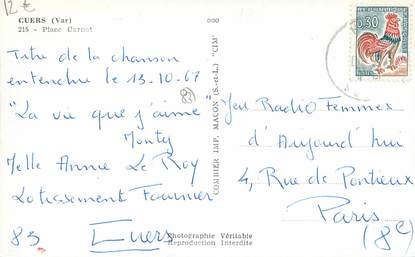 12€
CUERS (Var)
215 - Place Carnot
Titre de la chanson
entendue le 13.10.67
"La vie que j'aime"
Monty
Melle Annie Le Roy
Lotissement Fournier
83 Cuers
(83)
COMBIER IMP. MACON (S.-et-L.) "CIM"
Photographie Véritable
Reproduction Interdite
0,30
Jeu Radio Femmes
d'Aujourd'hui
4, Rue de Ponthieux
Paris
(8e)